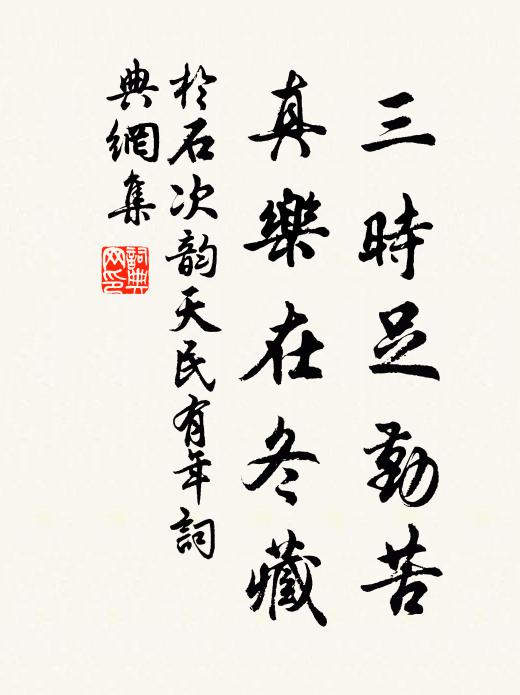 三時足勤苦
真樂在冬藏
於石次韵天民有年詞
典網集
詞典网印